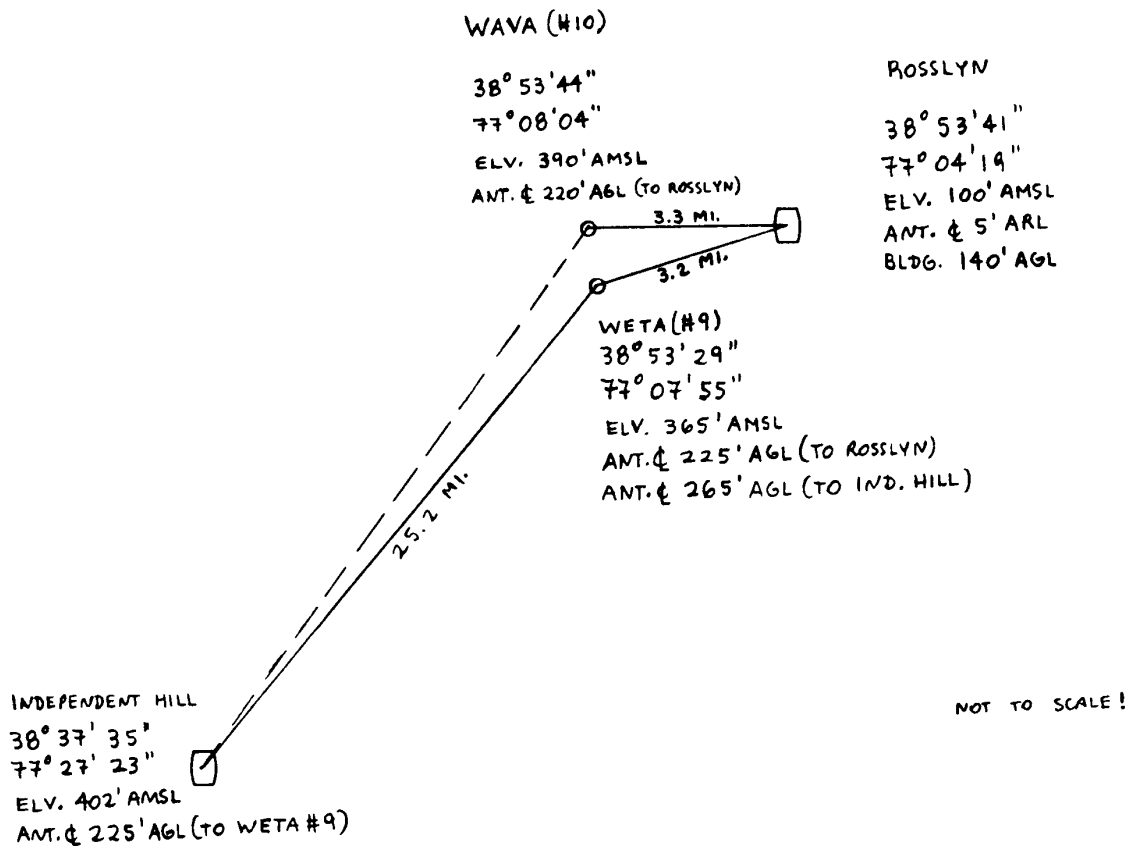 WAVA (#10)
38° 53' 44"
77° 08' 04"
ELV. 390' AMSL
ANT. ℄ 220' AGL (TO ROSSLYN)
ROSSLYN
38° 53' 41"
77° 04' 19"
ELV. 100' AMSL
ANT. ℄ 5' ARL
BLDG. 140' AGL
3.3 MI.
3.2 MI.
WETA (#9)
38° 53' 29"
77° 07' 55"
ELV. 365' AMSL
ANT. ℄ 225' AGL (TO ROSSLYN)
ANT. ℄ 265' AGL (TO IND. HILL)
25.2 MI.
INDEPENDENT HILL
38° 37' 35"
77° 27' 23"
ELV. 402' AMSL
ANT. ℄ 225' AGL (TO WETA #9)
NOT TO SCALE!